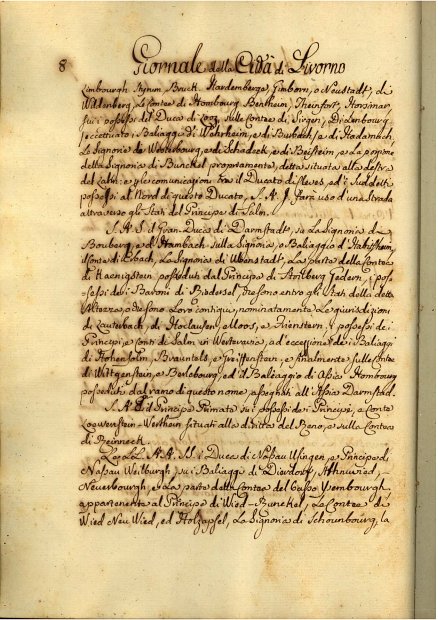 8 Giornale della Città di Livorno
Limbourgh Styrum, Bruck, Hardemberg, Gimborn, o Neustadt, di
Wildenberg, Le Contee di Hombourg Bentheim, Theinfort, Horstmar,
sui possessi del Duca di Looz, sulle Contee di Siegen, Di Lenbourg
(eccettuati i Baliaggi di Wehrheim, e di Burbach) e di Hadamach,
Le Signorie di Westerbourg, e di Schadeck, e di Beilstein, e La porzione
della Signoria di Runckel, propriamente detta, situata alla destra
del Lahn: e per le comunicazioni tra il Ducato di Cleves, ed i suddetti
possessi al Nord di questo Ducato, S. A. I. farà uso d'una strada
attraverso gli Stati del Principe di Salm.
S. A. S. il Gran-Duca di Darmstadt, su La Signoria di
Breuberg, e di Hambach, sulla Signoria, o Baliaggio d'Habizheim,
di Erbach, La Signoria di Ilbenstadt, La parte della Contea
di Kaenigstein posseduta dal Principe di Stolberg Gedern, i pos=
=sessi de' i Baroni di Riedersel, che sono entro gli Stati della detta
Altezza, o che sono Loro contigui, nominatamente Le giurisdizioni
di Lauterbach, di Stockausen, Moos, e Frienstern, i possessi dei
Principi, e Conti di Solms in Weteravia, ad eccezione de i Baliaggi
di Hohensolms, Braunfels, e Greiffenstein, e finalmente sulle Contee
di Wittgenstein, e Berlebourg, ed il Baliaggio di Assia Hombourg
posseduti dal ramo di questo nome appannati all'Assia Darmstad.
S. A. E. il Principe Primate su i possessi de i Principi, e Conte
Loewenstein-Wertheim situati alla diritta del Reno, e sulla Contea
di Reinneck.
Le LL. AA. SS. i Duca di Nassau Usingen, e Principe di
Nassau Weilbourgh, sui Baliaggi di Dierdorf, Altenwied,
Neuerbourgh, e La parte della Contea del basso Ysembourgh
appartenente al Principe di Wied-Runckel, Le Contee di
Wied Neu Wied, ed Holzapfel, La Signoria di Schounbourg, la